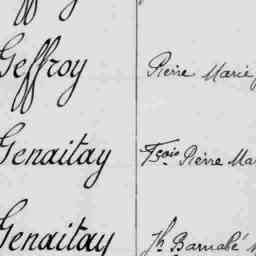 Geffroy Pierre Marie
Genaitay Fçois Pierre Mar
Genaitay Jh Barnabé